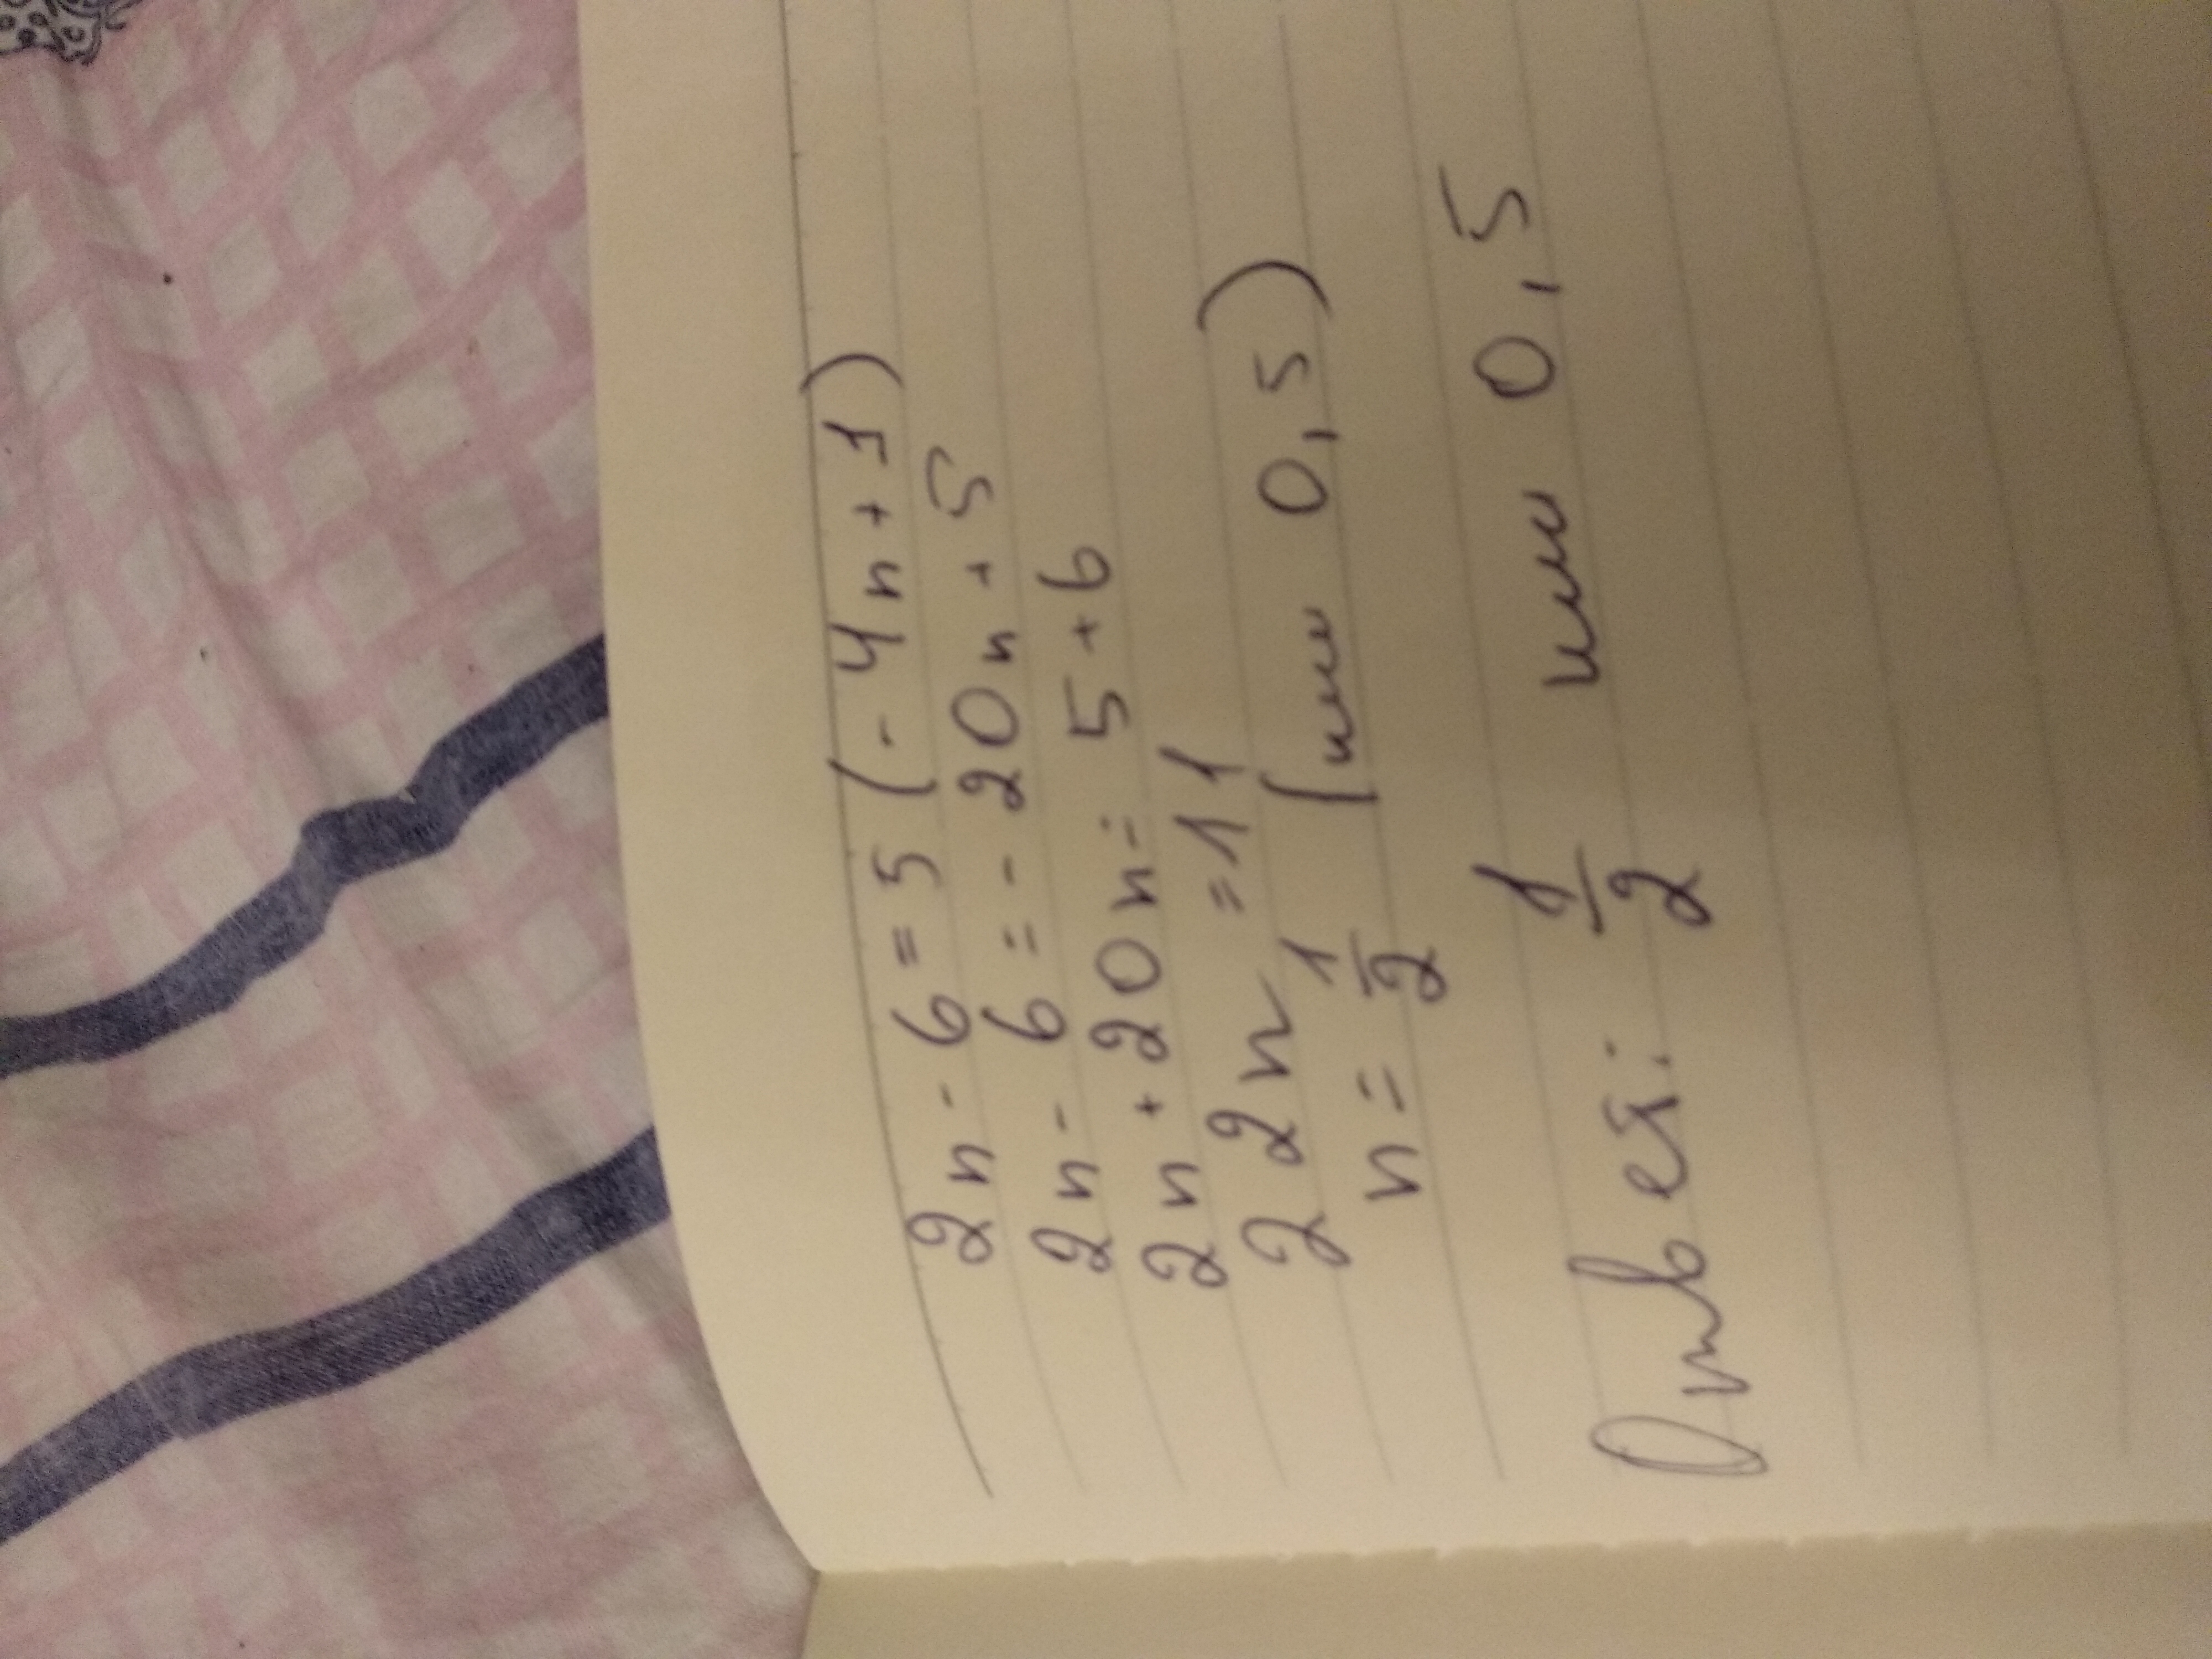 2n - 6 = 5 (- 4n + 1)
2n - 6 = - 20n + 5
2n + 20n = 5 + 6
22n = 11
n = 1/2 (или 0,5)
Ответ: 1/2 или 0,5